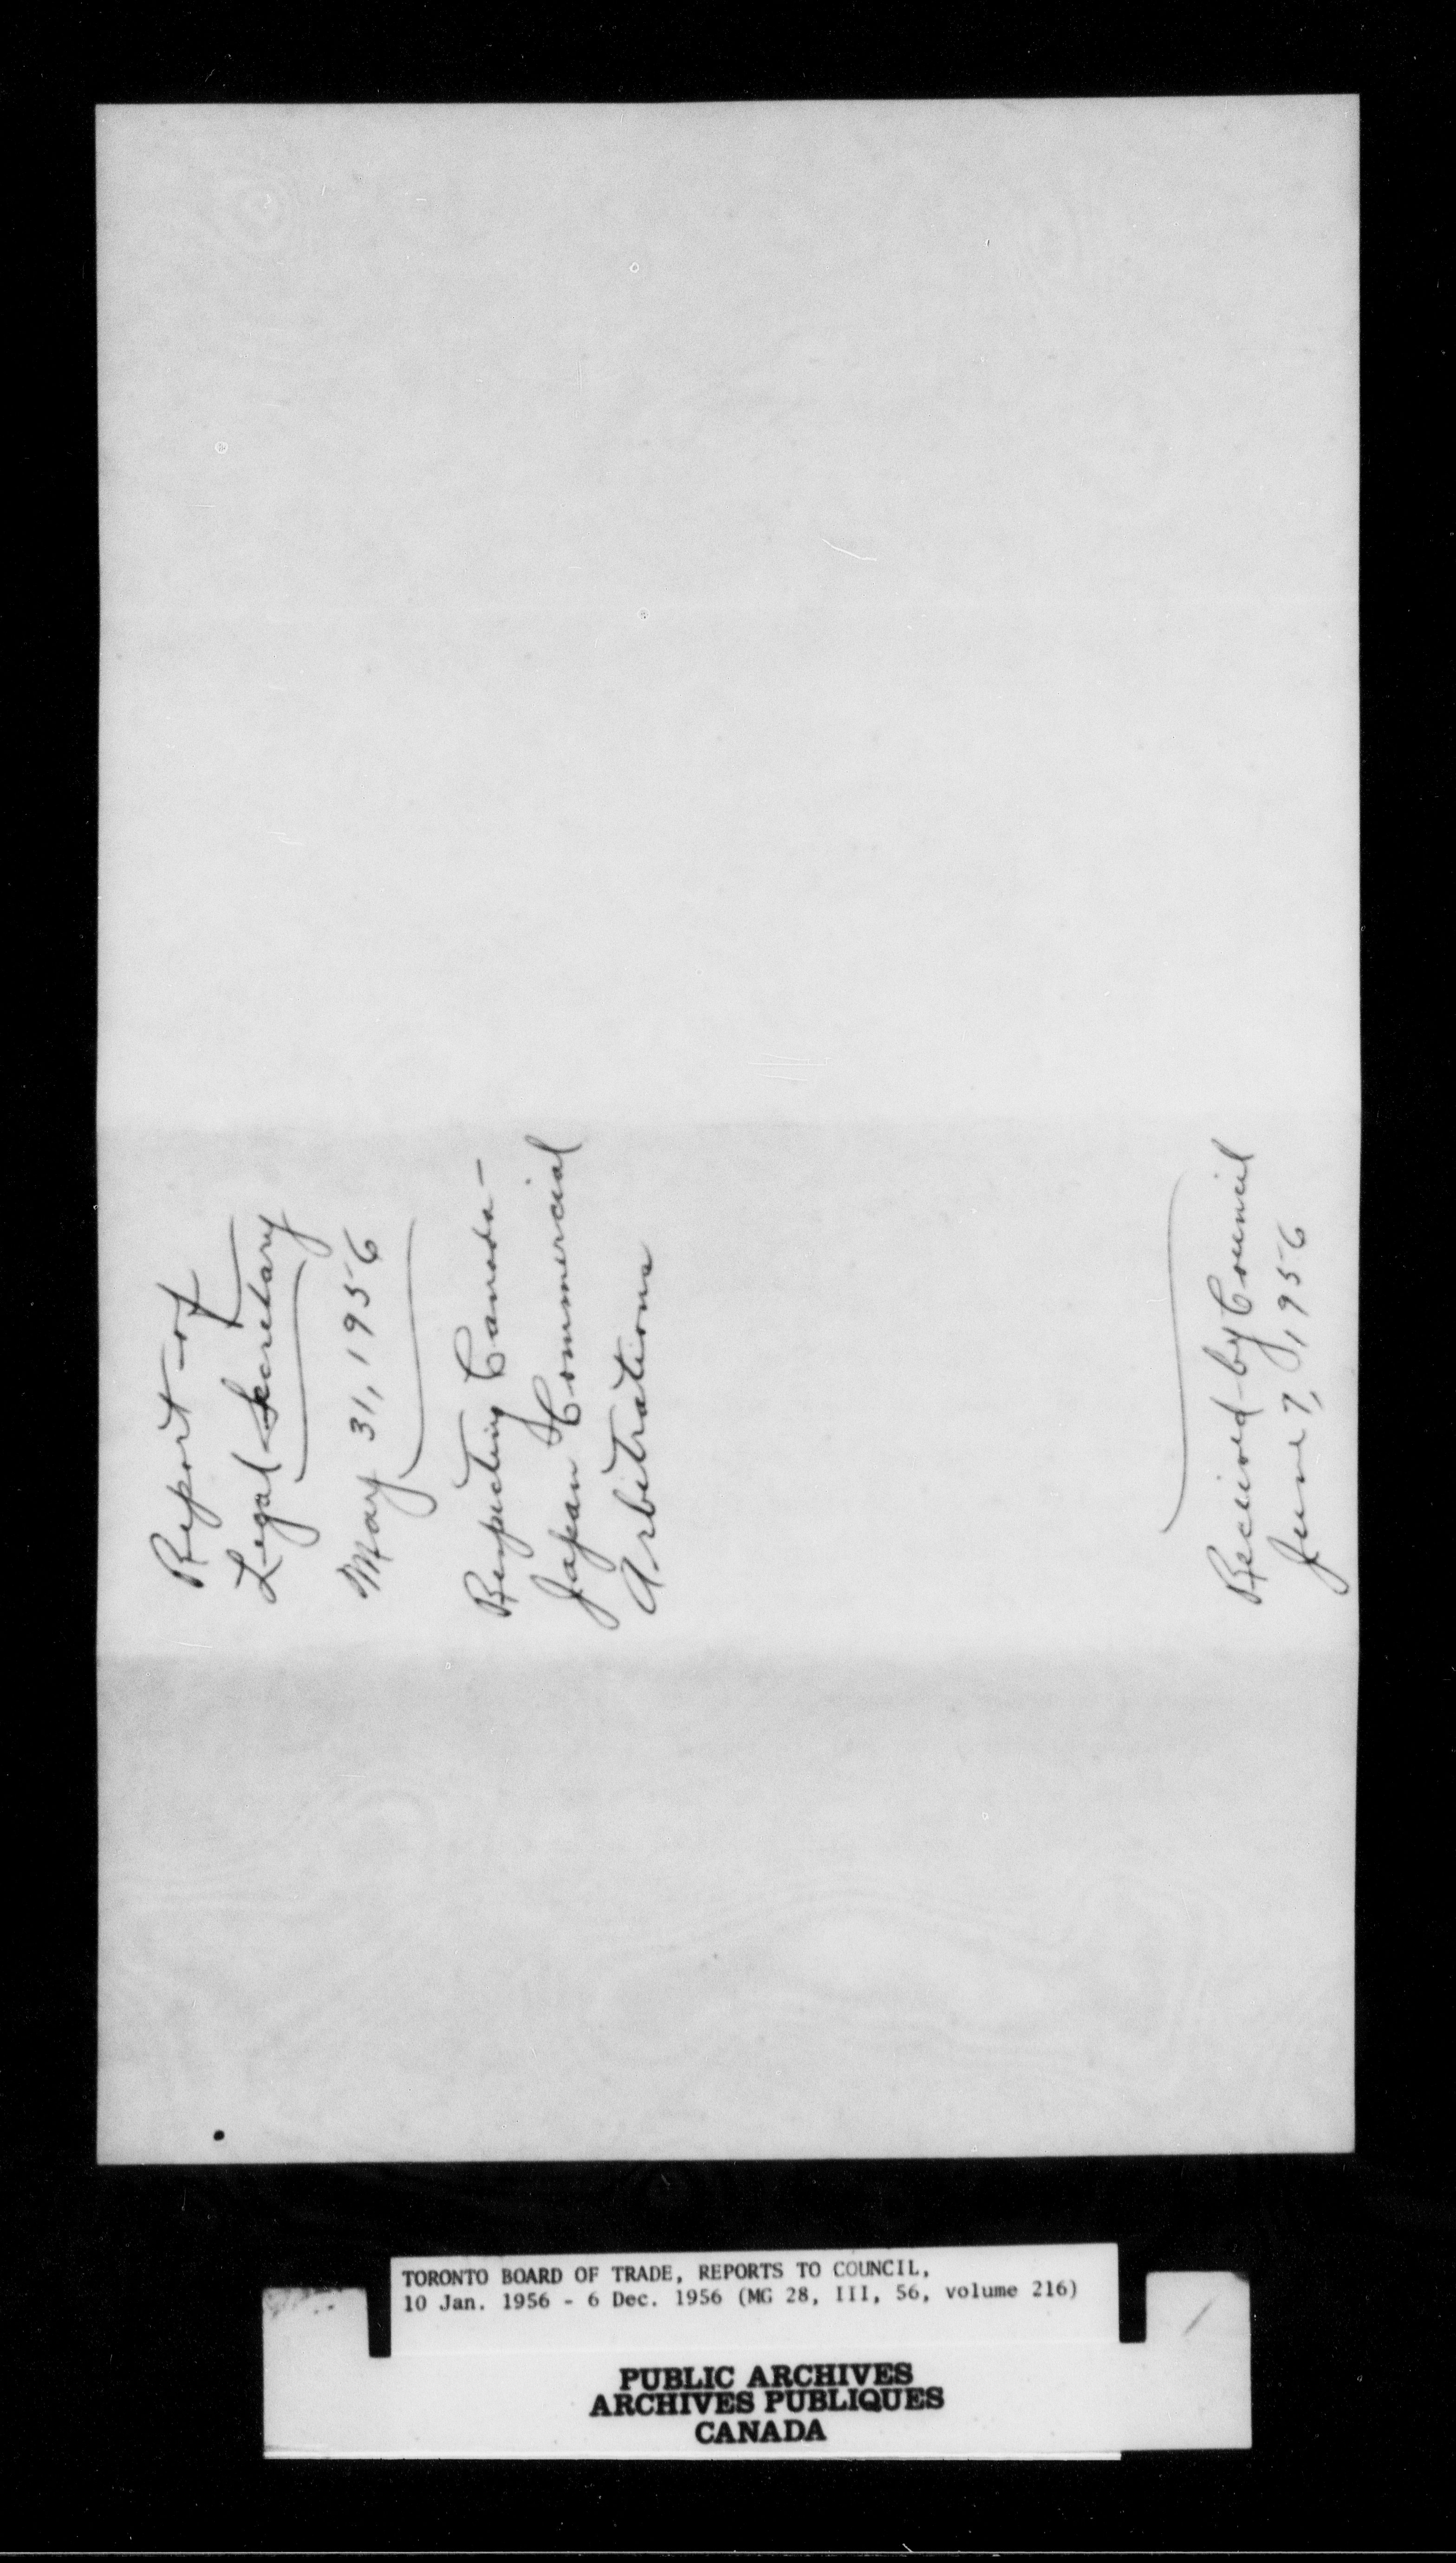 Report of
Legal Secretary
May 31, 1956
Respecting Canada-
Japan Commercial
Arbitrations
Received by Council
June 7, 1956
TORONTO BOARD OF TRADE, REPORTS TO COUNCIL,
10 Jan. 1956 - 6 Dec. 1956 (MG 28, III, 56, volume 216)
PUBLIC ARCHIVES
ARCHIVES PUBLIQUES
CANADA